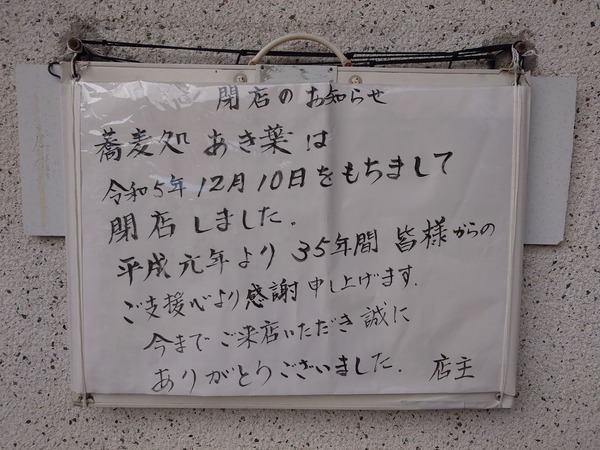 閉店のお知らせ
蕎麦処 あき葉は
令和5年12月10日をもちまして
閉店しました.
平成元年より 35年間 皆様からの
ご支援心より感謝申し上げます.
今までご来店いただき誠に
ありがとうございました. 店主